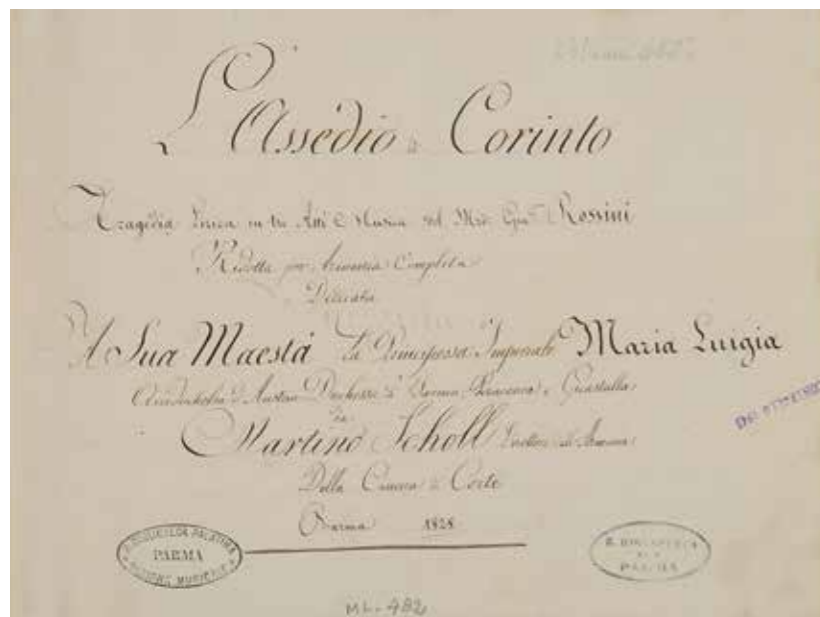 L'Assedio di Corinto
Tragedia Lirica in tre Atti e Musica del Mro. Gno. Rossini
Ridotta per Armonia Completa
Dedicata
A Sua Maestà la Principessa Imperiale Maria Luigia
Arciduchessa d'Austria Duchessa di Parma Piacenza e Guastalla
da
Martino Scholl Direttore di Armonia
Della Camera di Corte
Parma 1828
R. BIBLIOTECA PALATINA
PARMA
SEZIONE MUSICALE
R. BIBLIOTECA
PARMA
ML-482